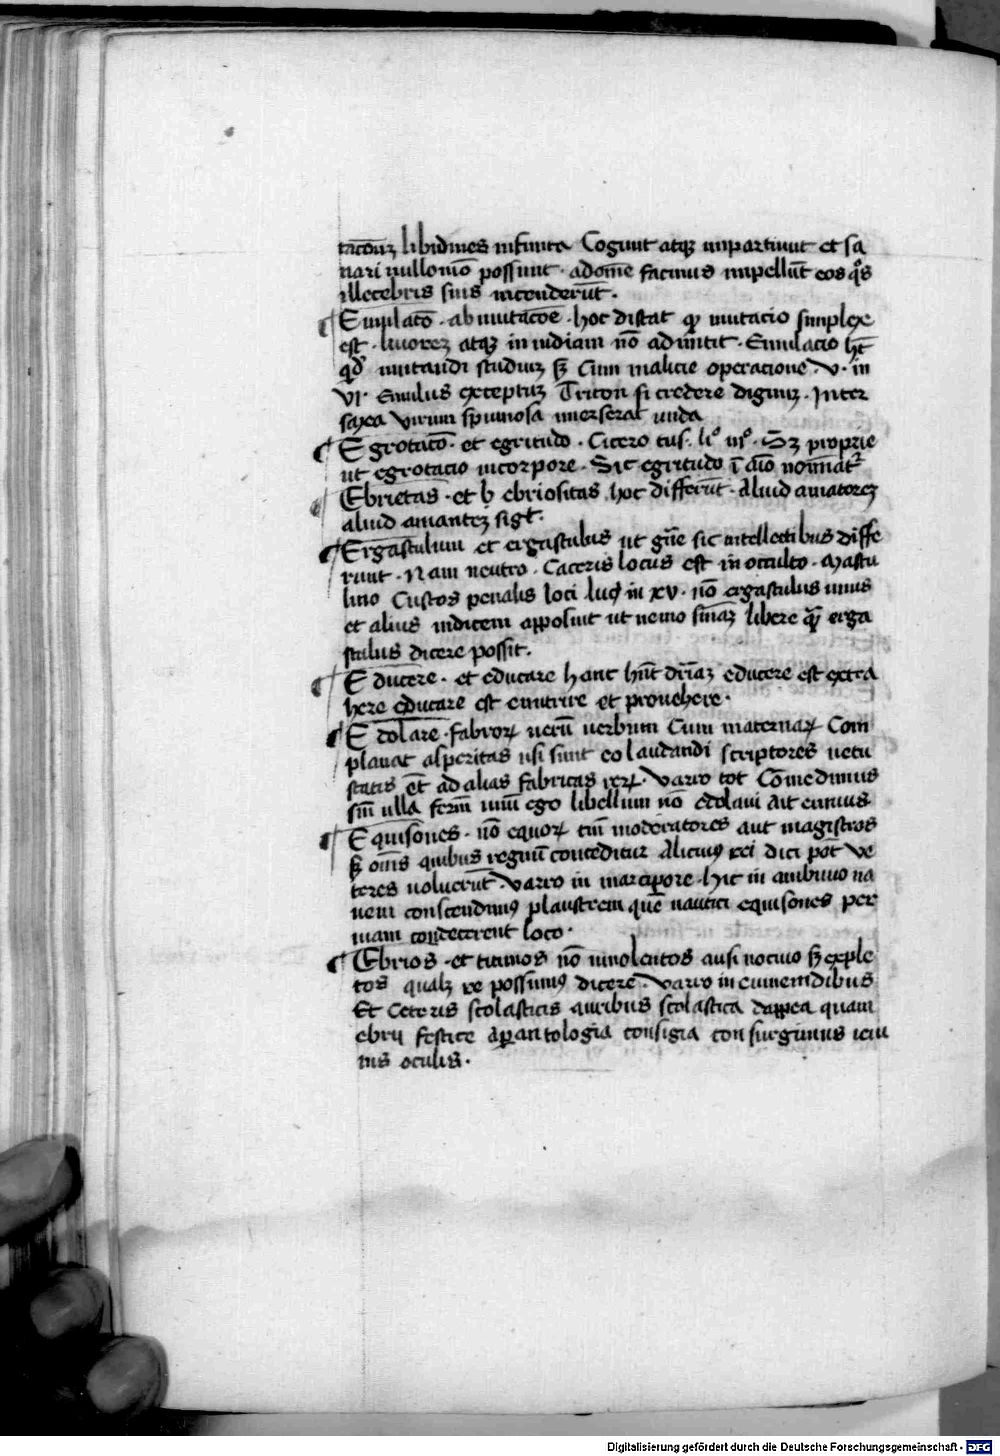 libidines Cogunt atqʒ impartiunt et sa
nari nullomō possunt · adomē facinus impellūt eos qͦs
illecebris suis incenderūt ·
Emulatō · ab imitacōe · hoc distat qꝫ imitacio simplex
est · livorez atqʒ invidiam nō admittit · Emulacio hꝫ
qd̓ imitandi studiuz sꝫ Cum malicie operacione · v · in
VI · Emulus exceptuz Triton si credere dignuz · Inter
saxa virum spumosa imerserat unda
Egrotatō · et egritudo · Cicero tus · liͦ iiiͦ · Sꝫ proprie
ut egrotacio in corpore · Sic egritudo ī aīo nominatᷣ
Ebrietas · et ebriositas hoc differūt · Aliud amatorez
aliud amantez sigt̄ ·
Ergastulum et ergastulus ut gn̄e sic intellectibus diffe
runt · Nam neutro · Caceris locus est in occulto · Mascu
lino Custos penalis loci lucꝫ in xv · nō ergastulus unus
et alius indicem apposiuit ut nemo libere erga
stulus dicere possit ·
Educere · et educare hanc hn̄t dr̄iaz educere est extra
here educare est enutrire et provehere ·
Edolare · fabroꝝ verū verbum Cum maternaꝝ Com
planat asperitas usi sunt eo laudandi scriptores vetu
statis et̄ ad alias fabricas reꝝ · Varro tot Comedimus
sīn ulla ego libellum nō edolavi Ait ennius
Equisones · nō equoꝝ tm̄ moderatores aut magistros
sꝫ om̄s quibus regimē conceditur Alicuiꝰ rei dici pōt ve
teres voluerūt · Varro in marcipore · hic in ambiuio na
vem conscendimꝰ plaustrem quē nautici equisones per
viam conducerent loco ·
Ebrios · et nō vinolentos ausi nocivo sꝫ exple
tos qualꝫ re possumꝰ dicere · Varro in eumenidibus
Et Ceteris scolasticis auribus scolastica dappea quam
ebrij festice Aperantologia consigia consurgimus ieiu
nis oculis ·
Digitalisierung gefördert durch die Deutsche Forschungsgemeinschaft - DFG